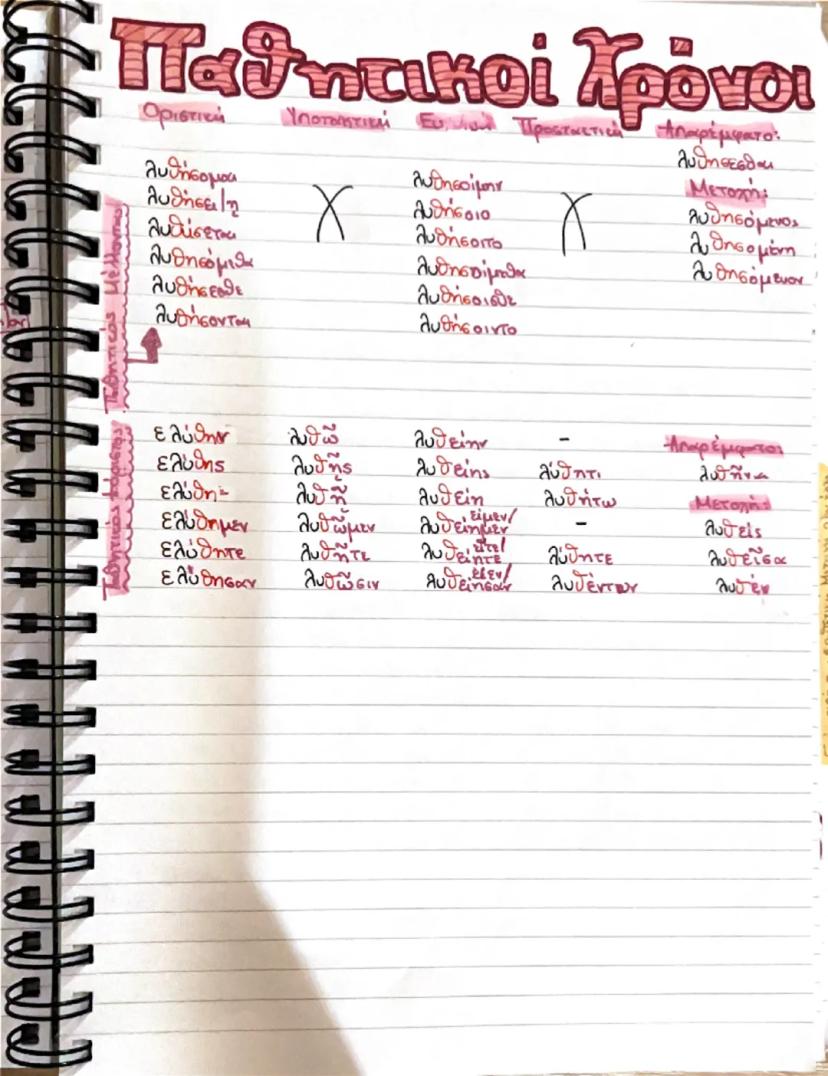 Παθητικοί Χρόνοι
Οριστική Υποτακτική Ευκτική Προστακτική Απαρέμφατο:
λυθήσεσθαι
λυθήσομαι λυθησοίμην Μετοχή:
λυθήσει/η λυθήσοιο λυθησόμενος
λυθήσεται λυθήσοιτο λυθησομένη
λυθησόμεθα λυθησοίμεθα λυθησόμενον
λυθήσεσθε λυθήσοισθε
λυθήσονται λυθήσοιντο
Παθητικός Μέλλοντας
ελύθην λυθῶ λυθείην - Απαρέμφατο:
ελύθης λυθῇς λυθείης λύθητι λυθῆναι
ελύθη- λυθῇ λυθείη λυθήτω Μετοχή:
ελύθημεν λυθῶμεν λυθείημεν/είμεν - λυθείς
ελύθητε λυθῆτε λυθείητε/είτε λύθητε λυθεῖσα
ελύθησαν λυθῶσιν λυθείησαν/είεν λυθέντων λυθέν
Παθητικός Αόριστος